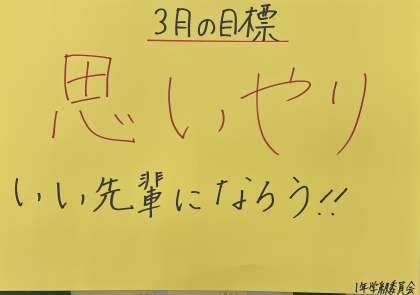 3月の目標
思いやり
いい先輩になろう!!
1年学級委員会